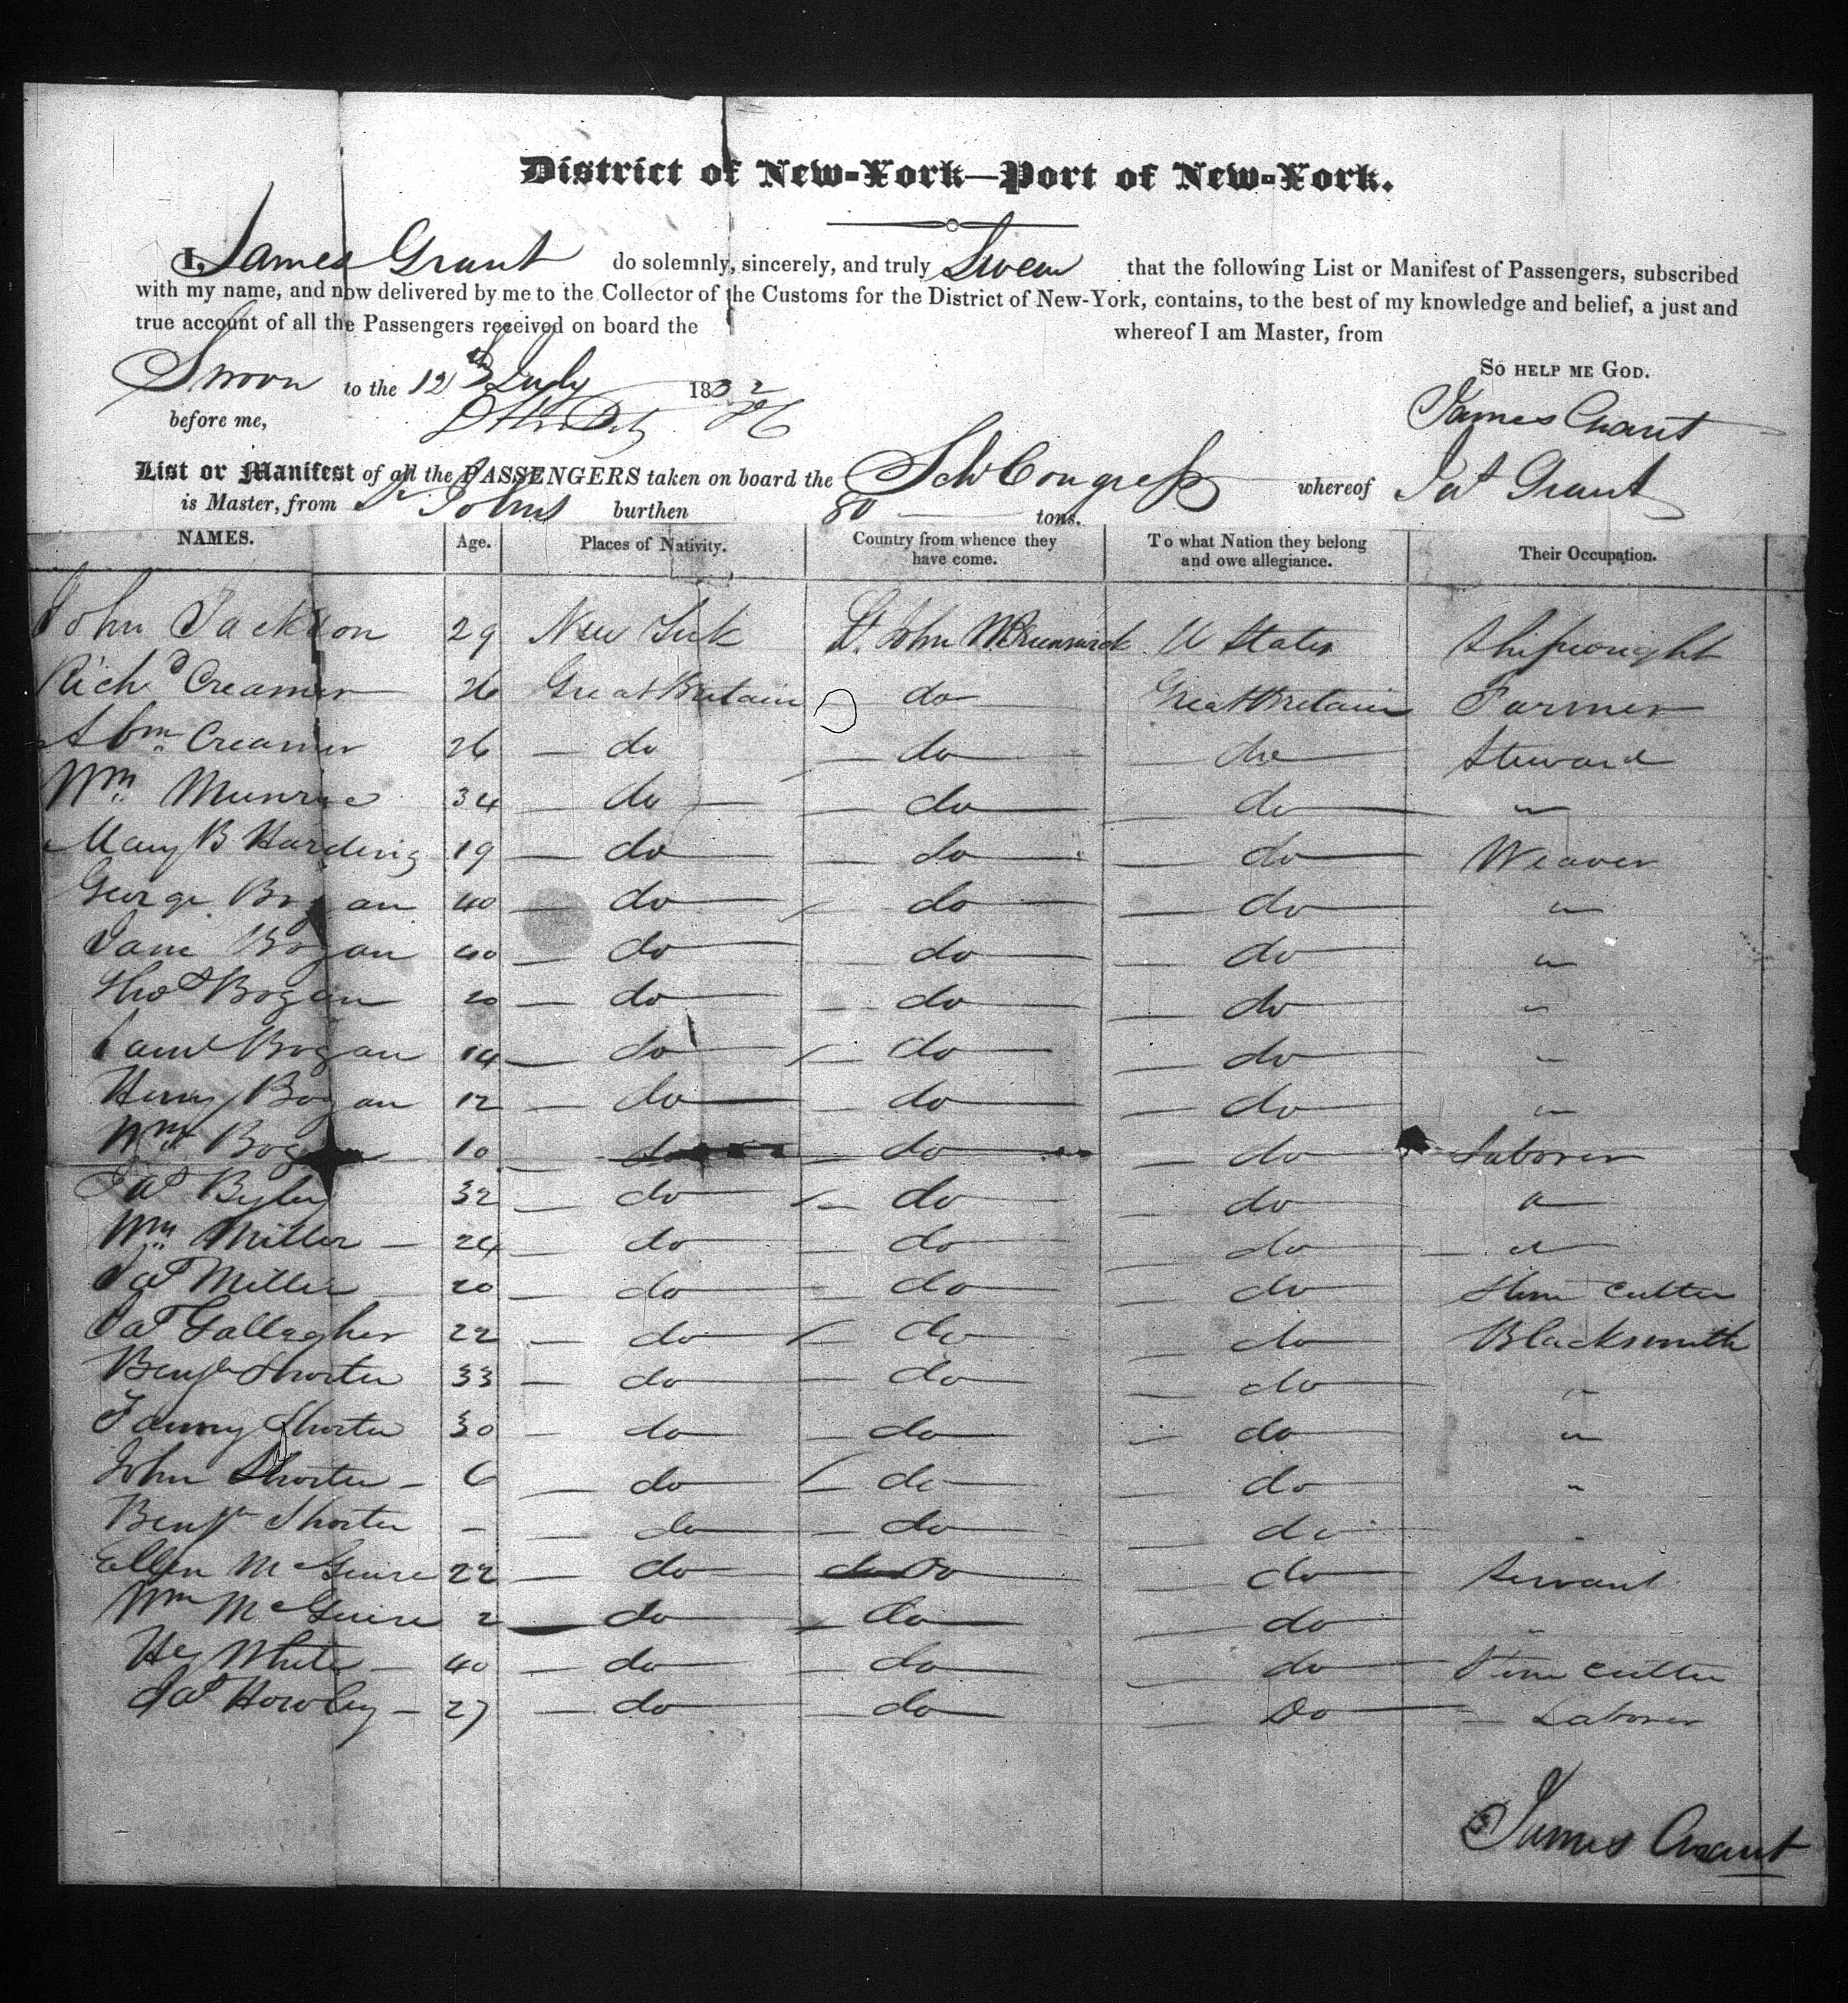 District of New-York—Port of New-York.
I, James Grant do solemnly, sincerely, and truly Swear that the following List or Manifest of Passengers, subscribed
with my name, and now delivered by me to the Collector of the Customs for the District of New-York, contains, to the best of my knowledge and belief, a just and
true account of all the Passengers received on board the whereof I am Master, from
So help me God.
Sworn to the 12th July 1832
before me, James Grant
List or Manifest of all the PASSENGERS taken on board the Schr Congress whereof Jas Grant
is Master, from St Johns burthen 80 tons.
NAMES. Age. Places of Nativity. Country from whence they have come. To what Nation they belong and owe allegiance. Their Occupation.
John Jackson 29 New York St. John NBrunswick U States Shipwright
Richd Creamer 26 Great Britain do Great Britain Farmer
Abm Creamer 26 do do do Steward
Wm Munroe 34 do do do "
Mary B Harding 19 do do do Weaver
George Bogan 40 do do do "
Jane Bogan 40 do do do "
Thos Bogan 20 do do do "
Saml Bogan 14 do do do "
Henry Bogan 12 do do do "
Wm Bogan 10 do do do Laborer
Jas 32 do do do "
Wm Miller 24 do do do "
Jas Miller 20 do do do Stone Cutter
Pat Gallagher 22 do do do Blacksmith
Benjn Shorter 33 do do do "
Fanny Shorter 30 do do do "
John Shorter 6 do do do "
Benjn Shorter - do do do "
Ellen McGuire 22 do do Do do Servant
Wm McGuire 2 do do do "
Hy White 40 do do do Stone Cutter
Jas Howley 27 do do Do Laborer
James Grant